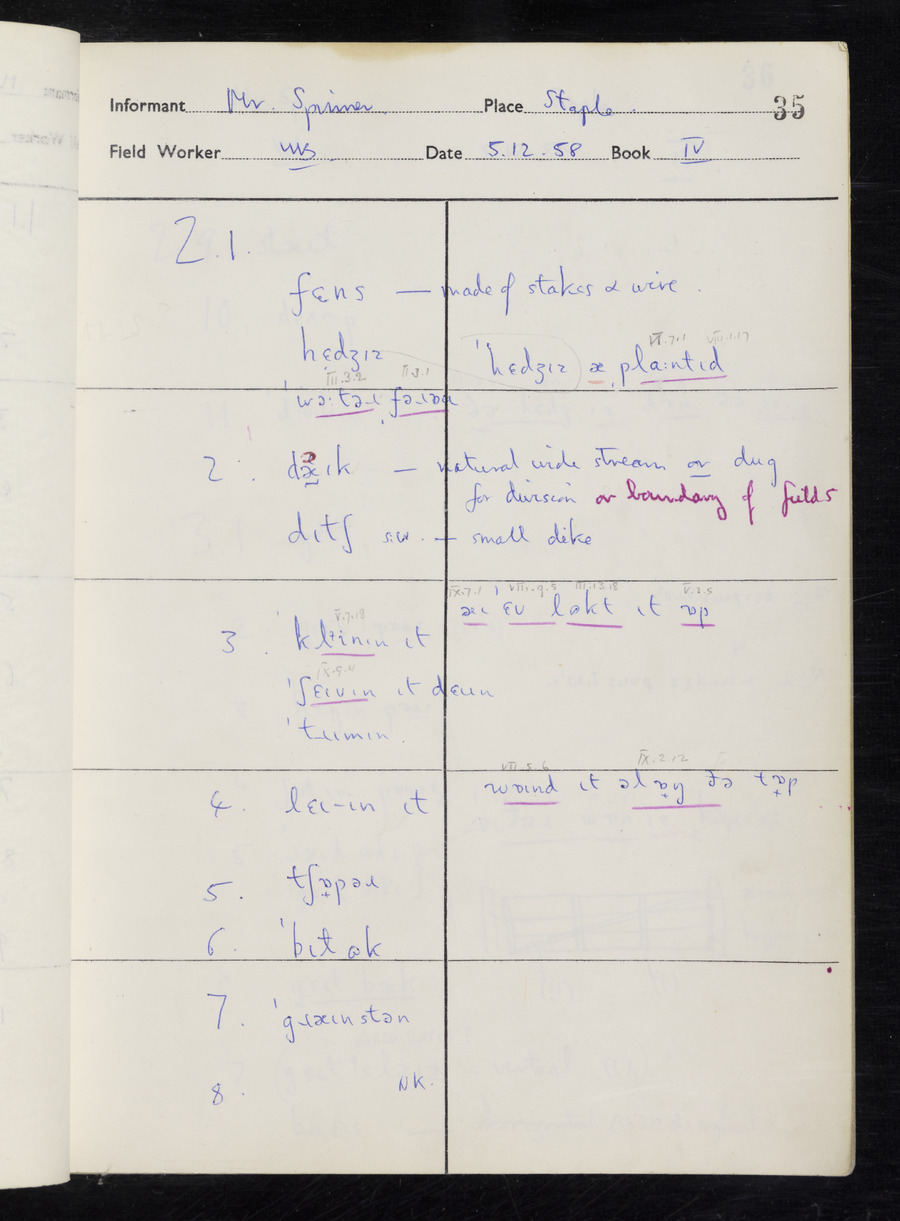 Informant Mr. Spinner Place Staple 35
Field Worker Date 5.12.58 Book IV
2.1.
fɛns — made of stakes & wire.
VI.7.1 VIII.1.17
hɛdʒɪz ˈhɛdʒɪz ə plaːntɪd
III.3.2 II.3.1
2. dəɪk — natural wide stream or dug
for division or boundary of fields
dɪtʃ s.w. — small dike
IX.7.1 VIII.9.5 III.13.18 V.2.5
æɪ ɛv lɒkt ɪt ɒp
V.7.18
3. ˈkliːnɪn ɪt
IX.9.4
ˈʃɛɪvɪn ɪt dɛun
ˈtɹɪmɪn.
VII.5.6 IX.2.12
4. lɛɪ-ɪn ɪt waɪnd ɪt əlɒŋ ðə tɒp
5. tʃɒpəɹ
6. ˈbɪtək
7. ˈgɹæɪnstən
8. NK.